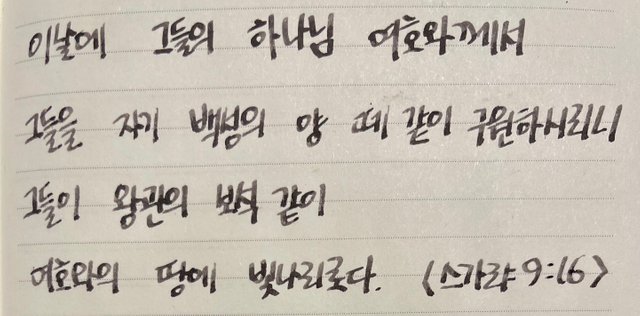 이날에 그들의 하나님 여호와께서
그들을 자기 백성의 양 떼 같이 구원하시리니
그들이 왕관의 보석 같이
여호와의 땅에 빛나리로다. <스가랴 9:16>